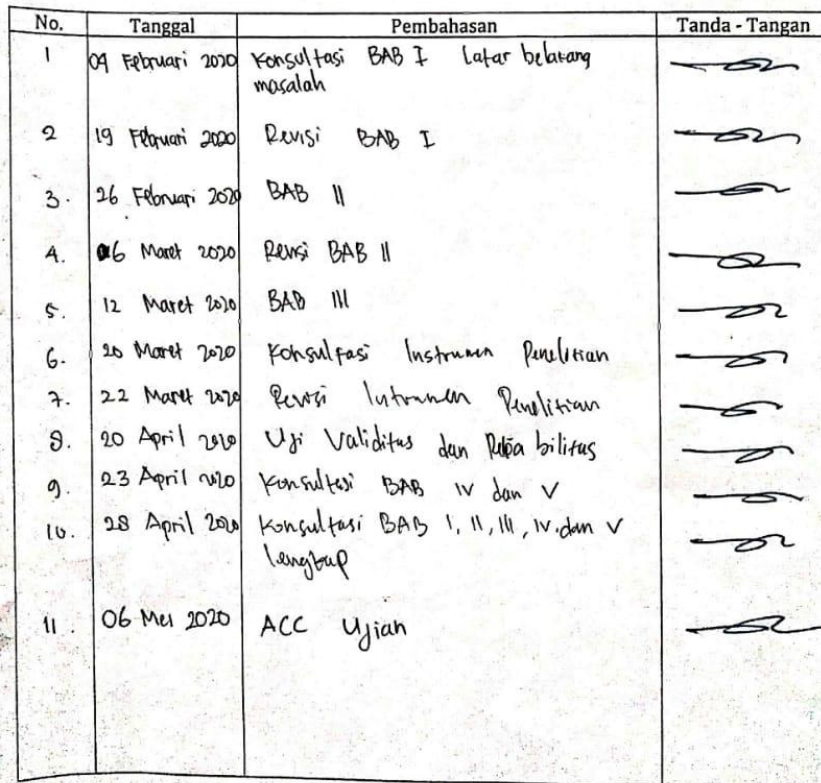 No. Tanggal Pembahasan Tanda - Tangan
1 04 Februari 2020 Konsultasi BAB I Latar belakang
masalah
2 19 Februari 2020 Revisi BAB I
3. 26 Februari 2020 BAB II
4. 06 Maret 2020 Revisi BAB II
5. 12 Maret 2020 BAB III
6. 20 Maret 2020 Konsultasi Instrumen Penelitian
7. 22 Maret 2020 Revisi Intrumen Penelitian
8. 20 April 2020 Uji Validitas dan Reliabilitas
9. 23 April 2020 Konsultasi BAB IV dan V
10. 28 April 2020 Konsultasi BAB I, II, III, IV. dan V
lengkap
11. 06 Mei 2020 ACC Ujian